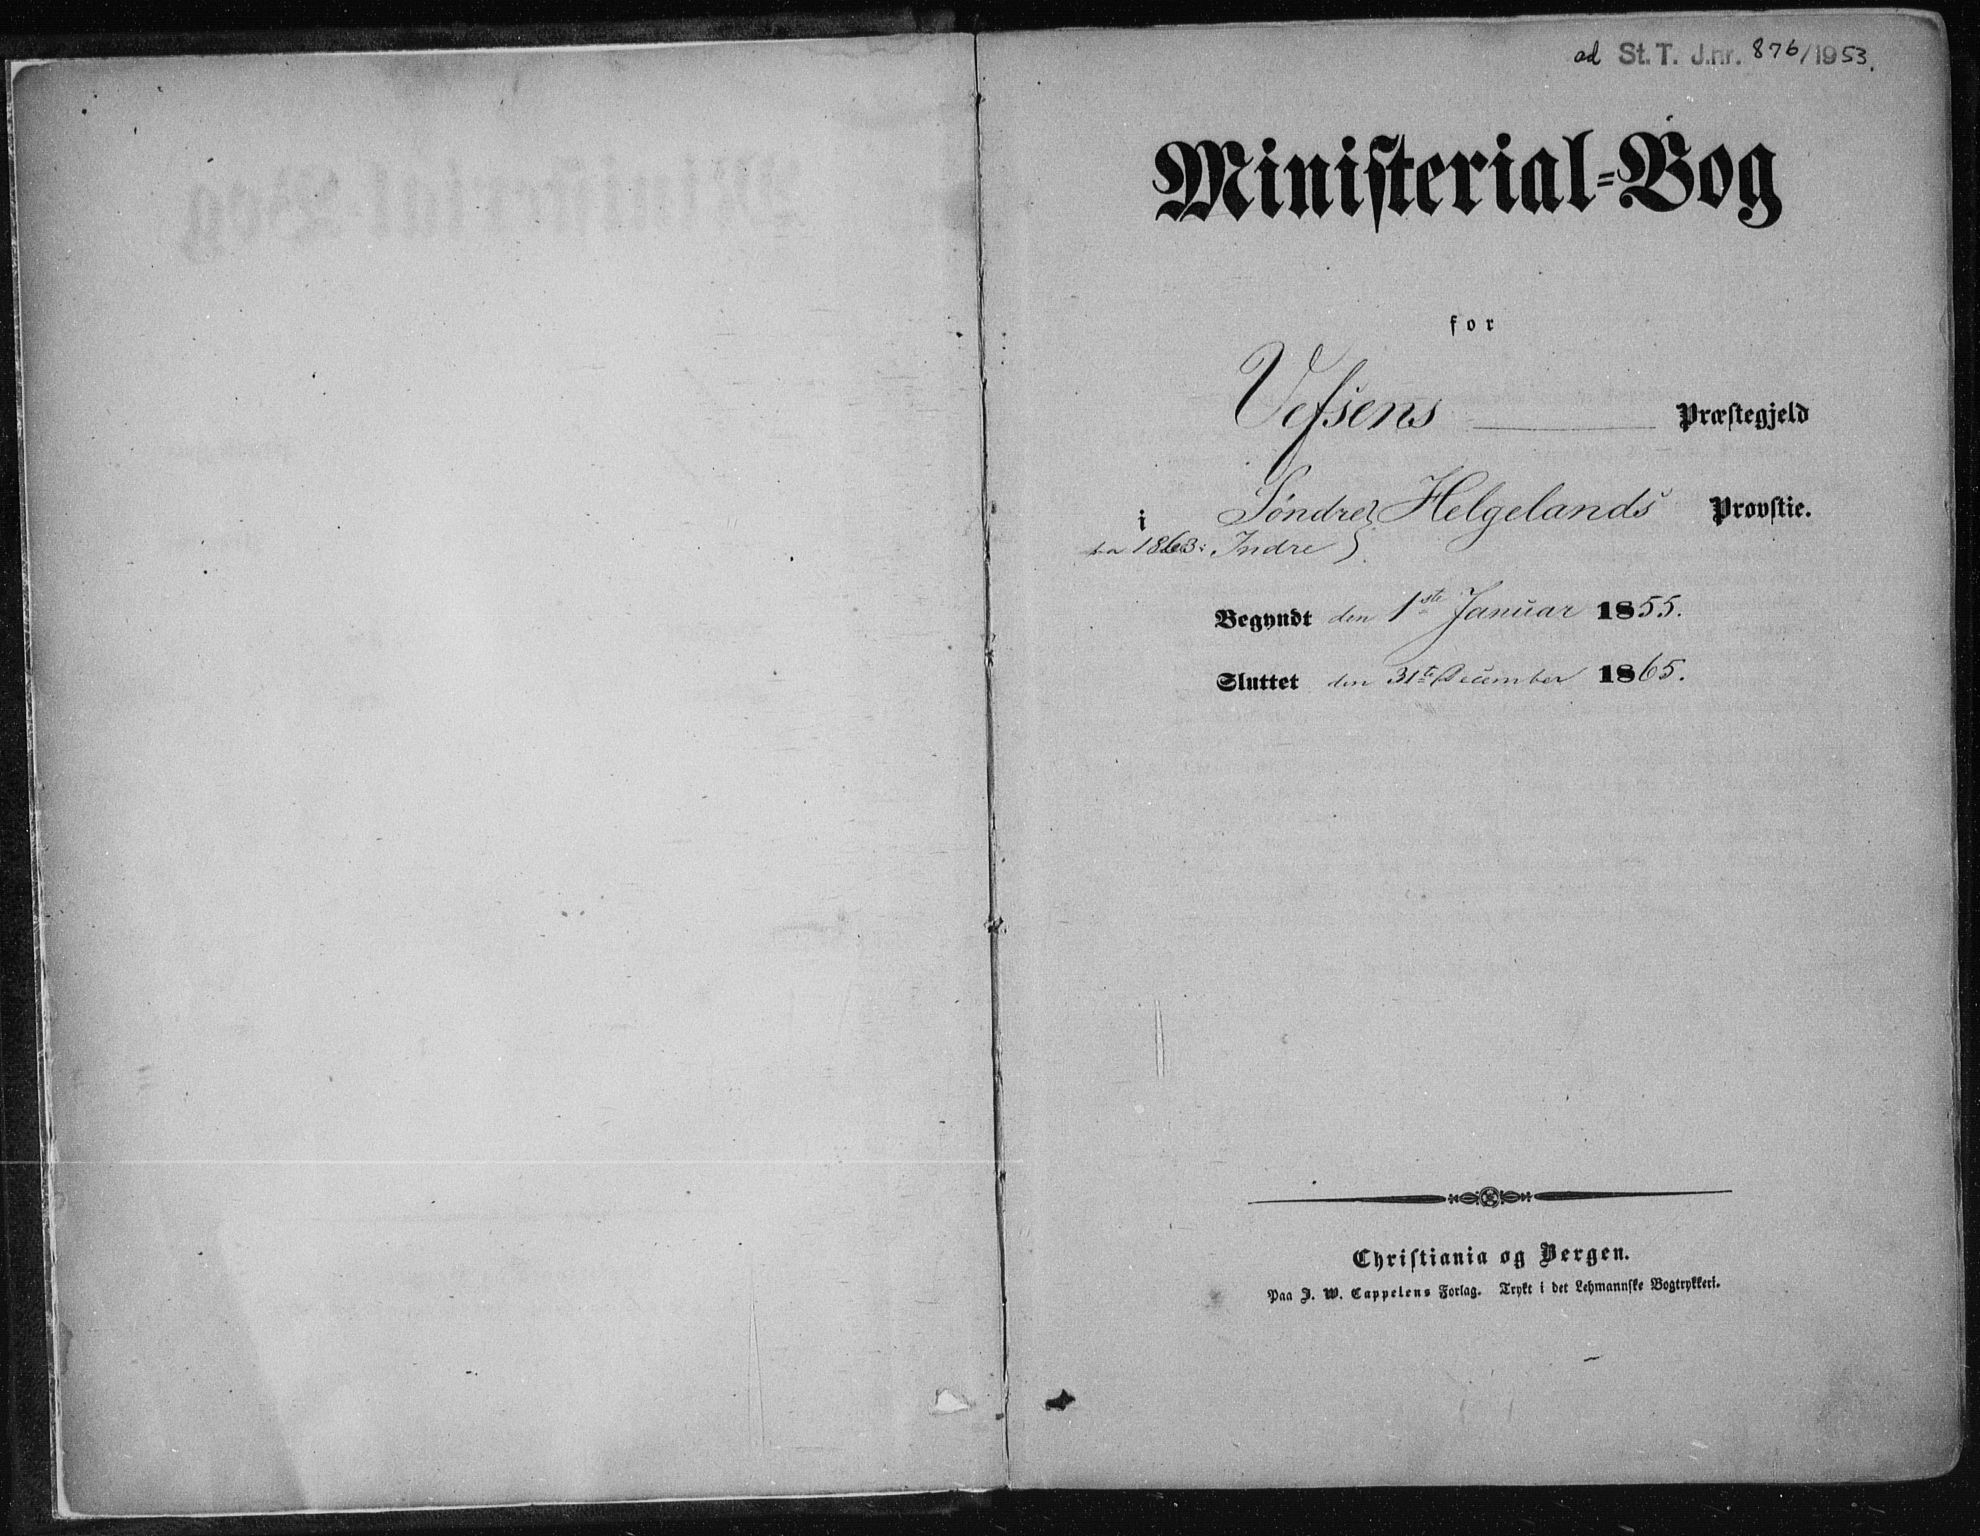 ad St. T. J.nr. 876/1953.
Ministerial-Bog
for
Vefsens Præstegjeld
i Søndre Helgelands Provstie.
fra 1863: Indre
Begyndt den 1ste Januar 1855.
Sluttet den 31te December 1865.
Christiania og Bergen.
Paa J. W. Cappelens Forlag. Trykt i det Lehmannske Bogtrykkeri.